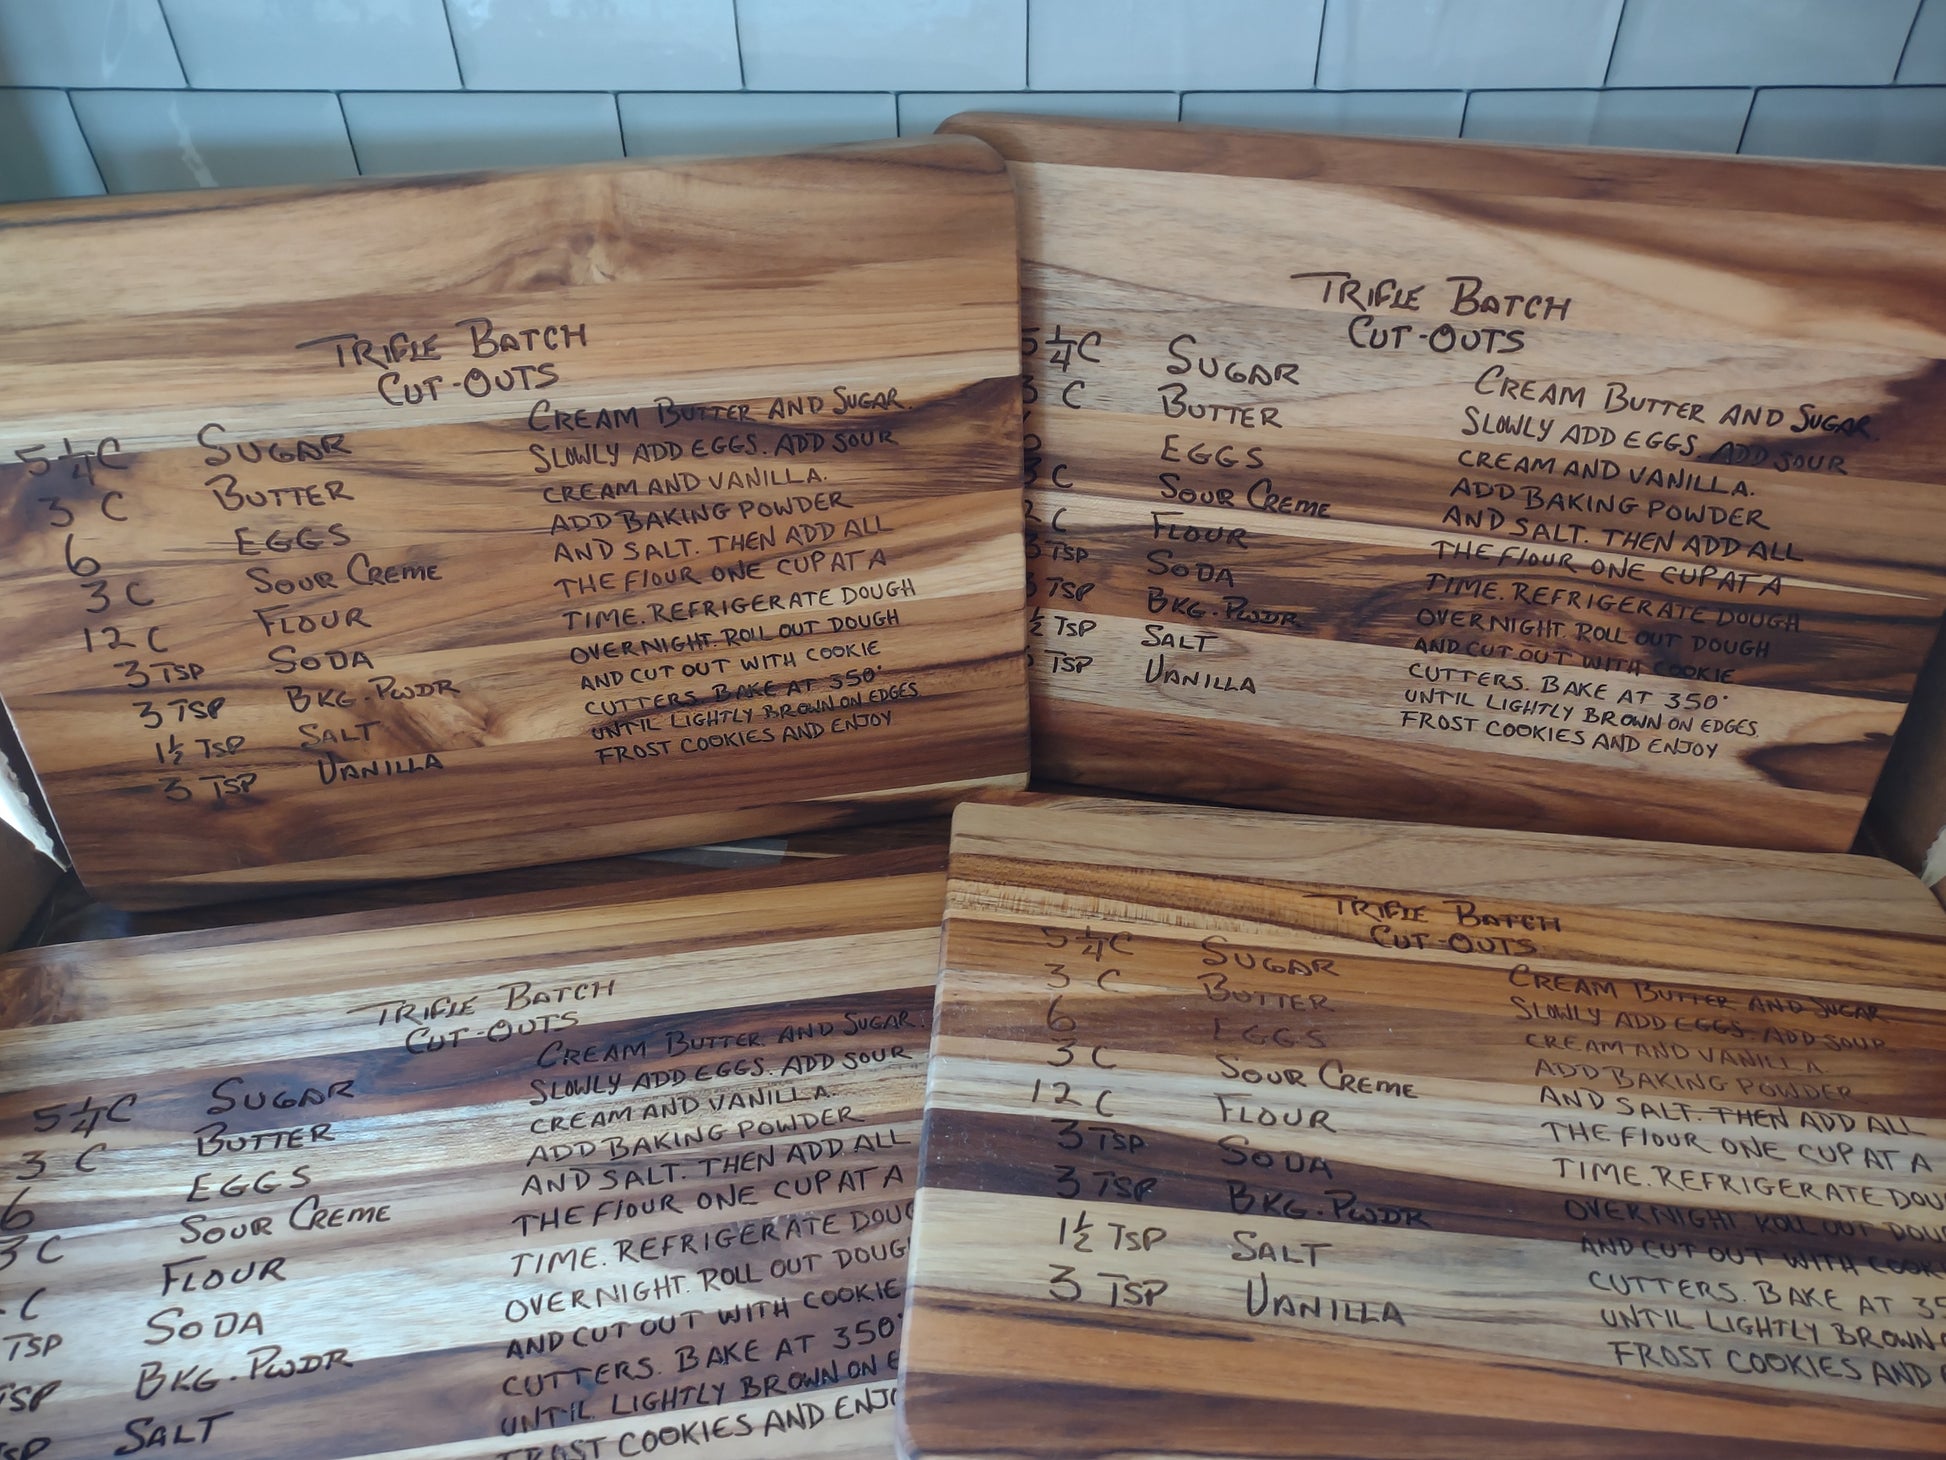 TRIFLE BATCH
CUT-OUTS
5 1/4 C SUGAR
3 C BUTTER
6 EGGS
3 C SOUR CREME
12 C FLOUR
3 TSP SODA
3 TSP BKG. PWDR
1 1/2 TSP SALT
3 TSP VANILLA
CREAM BUTTER AND SUGAR.
SLOWLY ADD EGGS. ADD SOUR
CREAM AND VANILLA.
ADD BAKING POWDER
AND SALT. THEN ADD ALL
THE FLOUR ONE CUP AT A
TIME. REFRIGERATE DOUGH
OVERNIGHT. ROLL OUT DOUGH
AND CUT OUT WITH COOKIE
CUTTERS. BAKE AT 350°
UNTIL LIGHTLY BROWN ON EDGES
FROST COOKIES AND ENJOY
TRIFLE BATCH
CUT-OUTS
5 1/4 C SUGAR
3 C BUTTER
EGGS
3 C SOUR CREME
2 C FLOUR
3 TSP SODA
3 TSP BKG. PWDR
1/2 TSP SALT
TSP VANILLA
CREAM BUTTER AND SUGAR.
SLOWLY ADD EGGS. ADD SOUR
CREAM AND VANILLA.
ADD BAKING POWDER
AND SALT. THEN ADD ALL
THE FLOUR ONE CUP AT A
TIME. REFRIGERATE DOUGH
OVERNIGHT. ROLL OUT DOUGH
AND CUT OUT WITH COOKIE
CUTTERS. BAKE AT 350°
UNTIL LIGHTLY BROWN ON EDGES
FROST COOKIES AND ENJOY
TRIFLE BATCH
CUT-OUTS
5 1/4 C SUGAR
3 C BUTTER
6 EGGS
3 C SOUR CREME
C FLOUR
TSP SODA
TSP BKG. PWDR
TSP SALT
CREAM BUTTER AND SUGAR.
SLOWLY ADD EGGS. ADD SOUR
CREAM AND VANILLA.
ADD BAKING POWDER
AND SALT. THEN ADD ALL
THE FLOUR ONE CUP AT A
TIME. REFRIGERATE DOUG
OVERNIGHT. ROLL OUT DOUGH
AND CUT OUT WITH COOKIE
CUTTERS. BAKE AT 350°
UNTIL LIGHTLY BROWN ON E
FROST COOKIES AND ENJO
TRIFLE BATCH
CUT-OUTS
5 1/4 C SUGAR
3 C BUTTER
6 EGGS
3 C SOUR CREME
12 C FLOUR
3 TSP SODA
3 TSP BKG. PWDR
1 1/2 TSP SALT
3 TSP VANILLA
CREAM BUTTER AND SUGAR.
SLOWLY ADD EGGS. ADD SOUR
CREAM AND VANILLA.
ADD BAKING POWDER
AND SALT. THEN ADD ALL
THE FLOUR ONE CUP AT A
TIME. REFRIGERATE DOU
OVERNIGHT. ROLL OUT DOU
AND CUT OUT WITH COOK
CUTTERS. BAKE AT 35
UNTIL LIGHTLY BROWN
FROST COOKIES AND